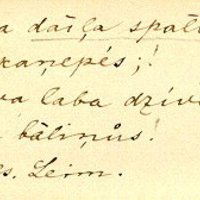 a daiļa spal
kaņepēs;!
va laba dzīv
bāliņŭs!
s. Leim.